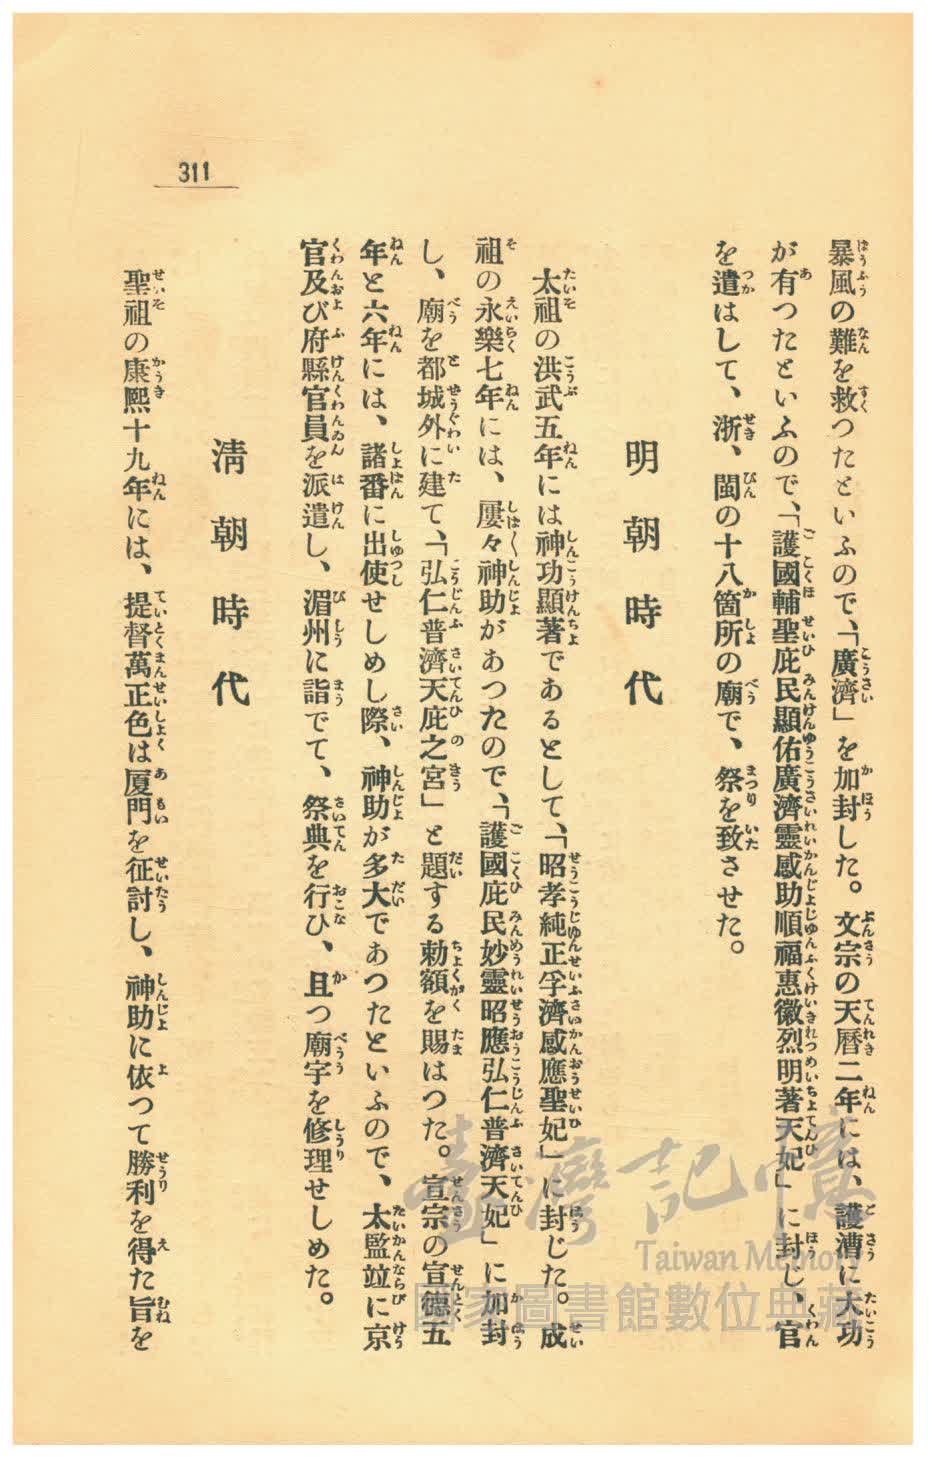 311
暴風の難を救つたといふので、「廣濟」を加封した。文宗の天曆二年には、護漕に大功
が有つたといふので、「護國輔聖庇民顯佑廣濟靈感助順福惠徽烈明著天妃」に封じ、官
を遣はして、浙、閩の十八箇所の廟で、祭を致させた。
明朝時代
太祖の洪武五年には神功顯著であるとして、「昭孝純正孚濟感應聖妃」に封じた。成
祖の永樂七年には、屢々神助があつたので、「護國庇民妙靈昭應弘仁普濟天妃」に加封
し、廟を都城外に建て、「弘仁普濟天庇之宮」と題する勅額を賜はつた。宣宗の宣德五
年と六年には、諸番に出使せしめし際、神助が多大であつたといふので、太監竝に京
官及び府縣官員を派遣し、湄州に詣でて、祭典を行ひ、且つ廟宇を修理せしめた。
淸朝時代
聖祖の康熙十九年には、提督萬正色は厦門を征討し、神助に依つて勝利を得た旨を
臺灣記憶
Taiwan Memory
國家圖書館數位典藏